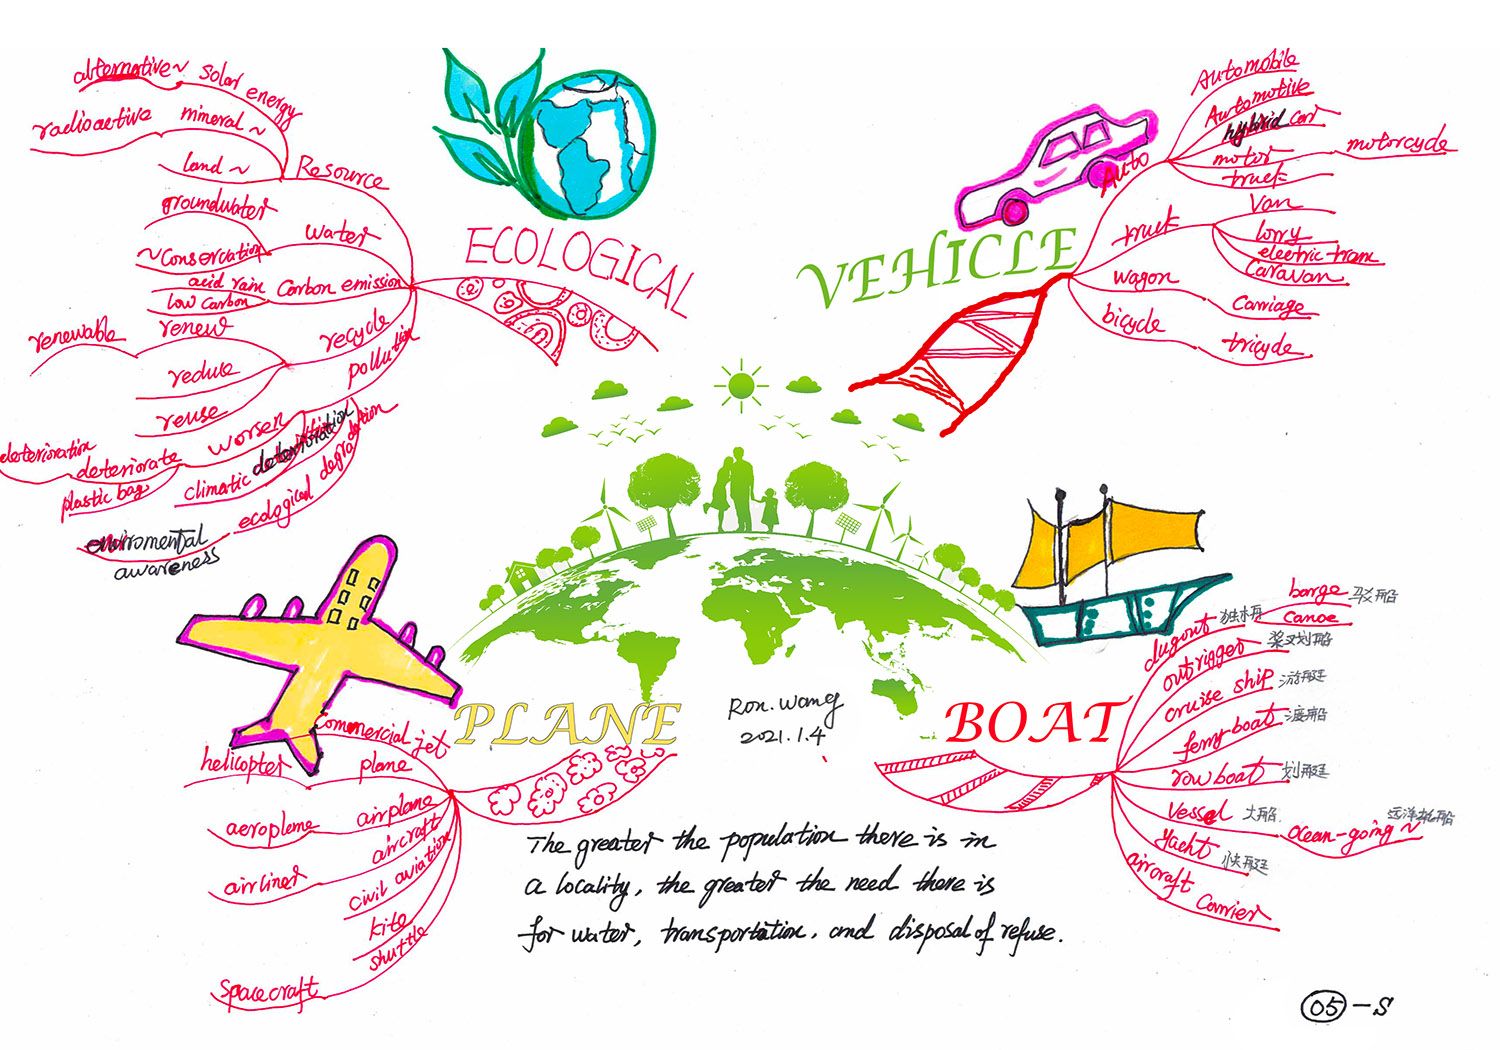 alternative~
solar energy
radioactive
mineral ~
land ~
Resource
groundwater
water
~Conservation
acid rain
Low Carbon
Carbon emission
renewable
renew
recycle
reduce
reuse
pollution
worsen
deterioration
deteriorate
plastic bag
climatic deterioration
ecological degradation
enviromental
awareness
ECOLOGICAL
VEHICLE
Auto
Automobile
Automotive
hybrid car
motor
motorcycle
truck
truck
Van
lorry
electric tram
Caravan
wagon
Carriage
bicycle
tricycle
PLANE
Commercial jet
helicopter
plane
airplane
aeroplane
aircraft
airliner
civil aviation
kite
shuttle
Spacecraft
Ron. Wang
2021.1.4
BOAT
dugout 独木舟
barge 驳船
Canoe
outrigger 桨叉划船
cruise ship 游艇
ferry boat 渡船
row boat 划艇
Vessel 大船
ocean-going ~ 远洋轮船
Yacht 快艇
aircraft Carrier
The greater the population there is in
a locality, the greater the need there is
for water, transportation, and disposal of refuse.
05-S